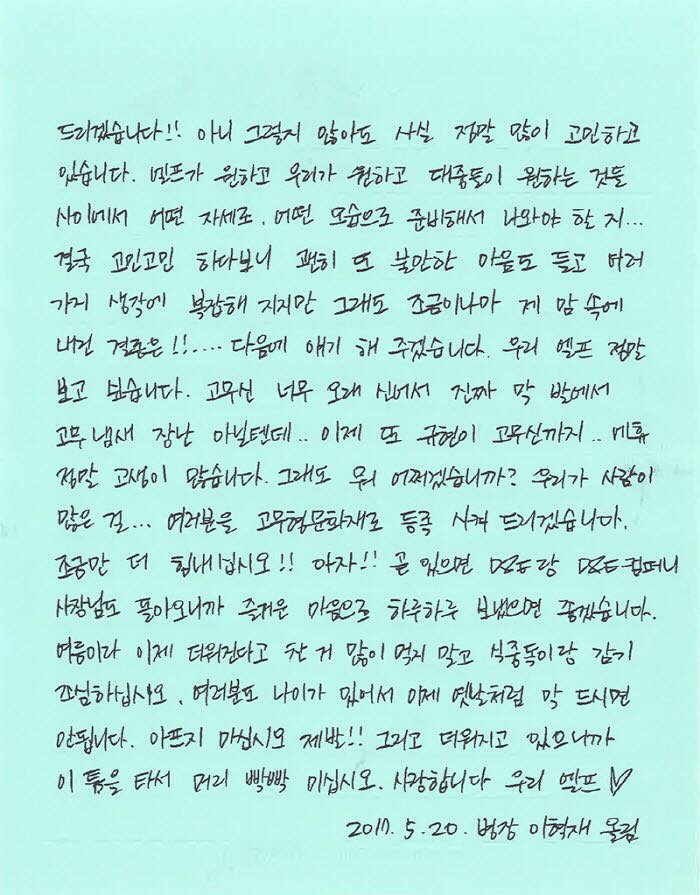 드리겠습니다!! 아니 그렇지 않아도 사실 정말 많이 고민하고
있습니다. 엘프가 원하고 우리가 원하고 대중들이 원하는 것들
사이에서 어떤 자세로. 어떤 모습으로 준비해서 나와야 할 지...
결국 고민고민 하다보니 괜히 또 불안한 마음도 들고 여러
가지 생각에 복잡해 지지만 그래도 조금이나마 제 맘 속에
내린 결론은!!.... 다음에 얘기 해 주겠습니다. 우리 엘프 정말
보고 싶습니다. 고무신 너무 오래 신어서 진짜 막 발에서
고무 냄새 장난 아닐텐데.. 이제 또 규현이 고무신까지.. 에휴
정말 고생이 많습니다. 그래도 뭐 어쩌겠습니까? 우리가 사람이
많은 걸... 여러분을 고무형문화재로 등록 시켜 드리겠습니다.
조금만 더 힘내십시오!! 아자!! 곧 있으면 D&E랑 D&E컴퍼니
사장님도 돌아오니까 즐거운 마음으로 하루하루 보냈으면 좋겠습니다.
여름이라 이제 더워진다고 찬 거 많이 먹지 말고 식중독이랑 감기
조심하십시오. 여러분도 나이가 있어서 이제 옛날처럼 막 드시면
안됩니다. 아프지 마십시오 제발!! 그리고 더워지고 있으니까
이 틈을 타서 머리 빡빡 미십시오. 사랑합니다 우리 엘프♡
2017. 5. 20. 병장 이혁재 올림